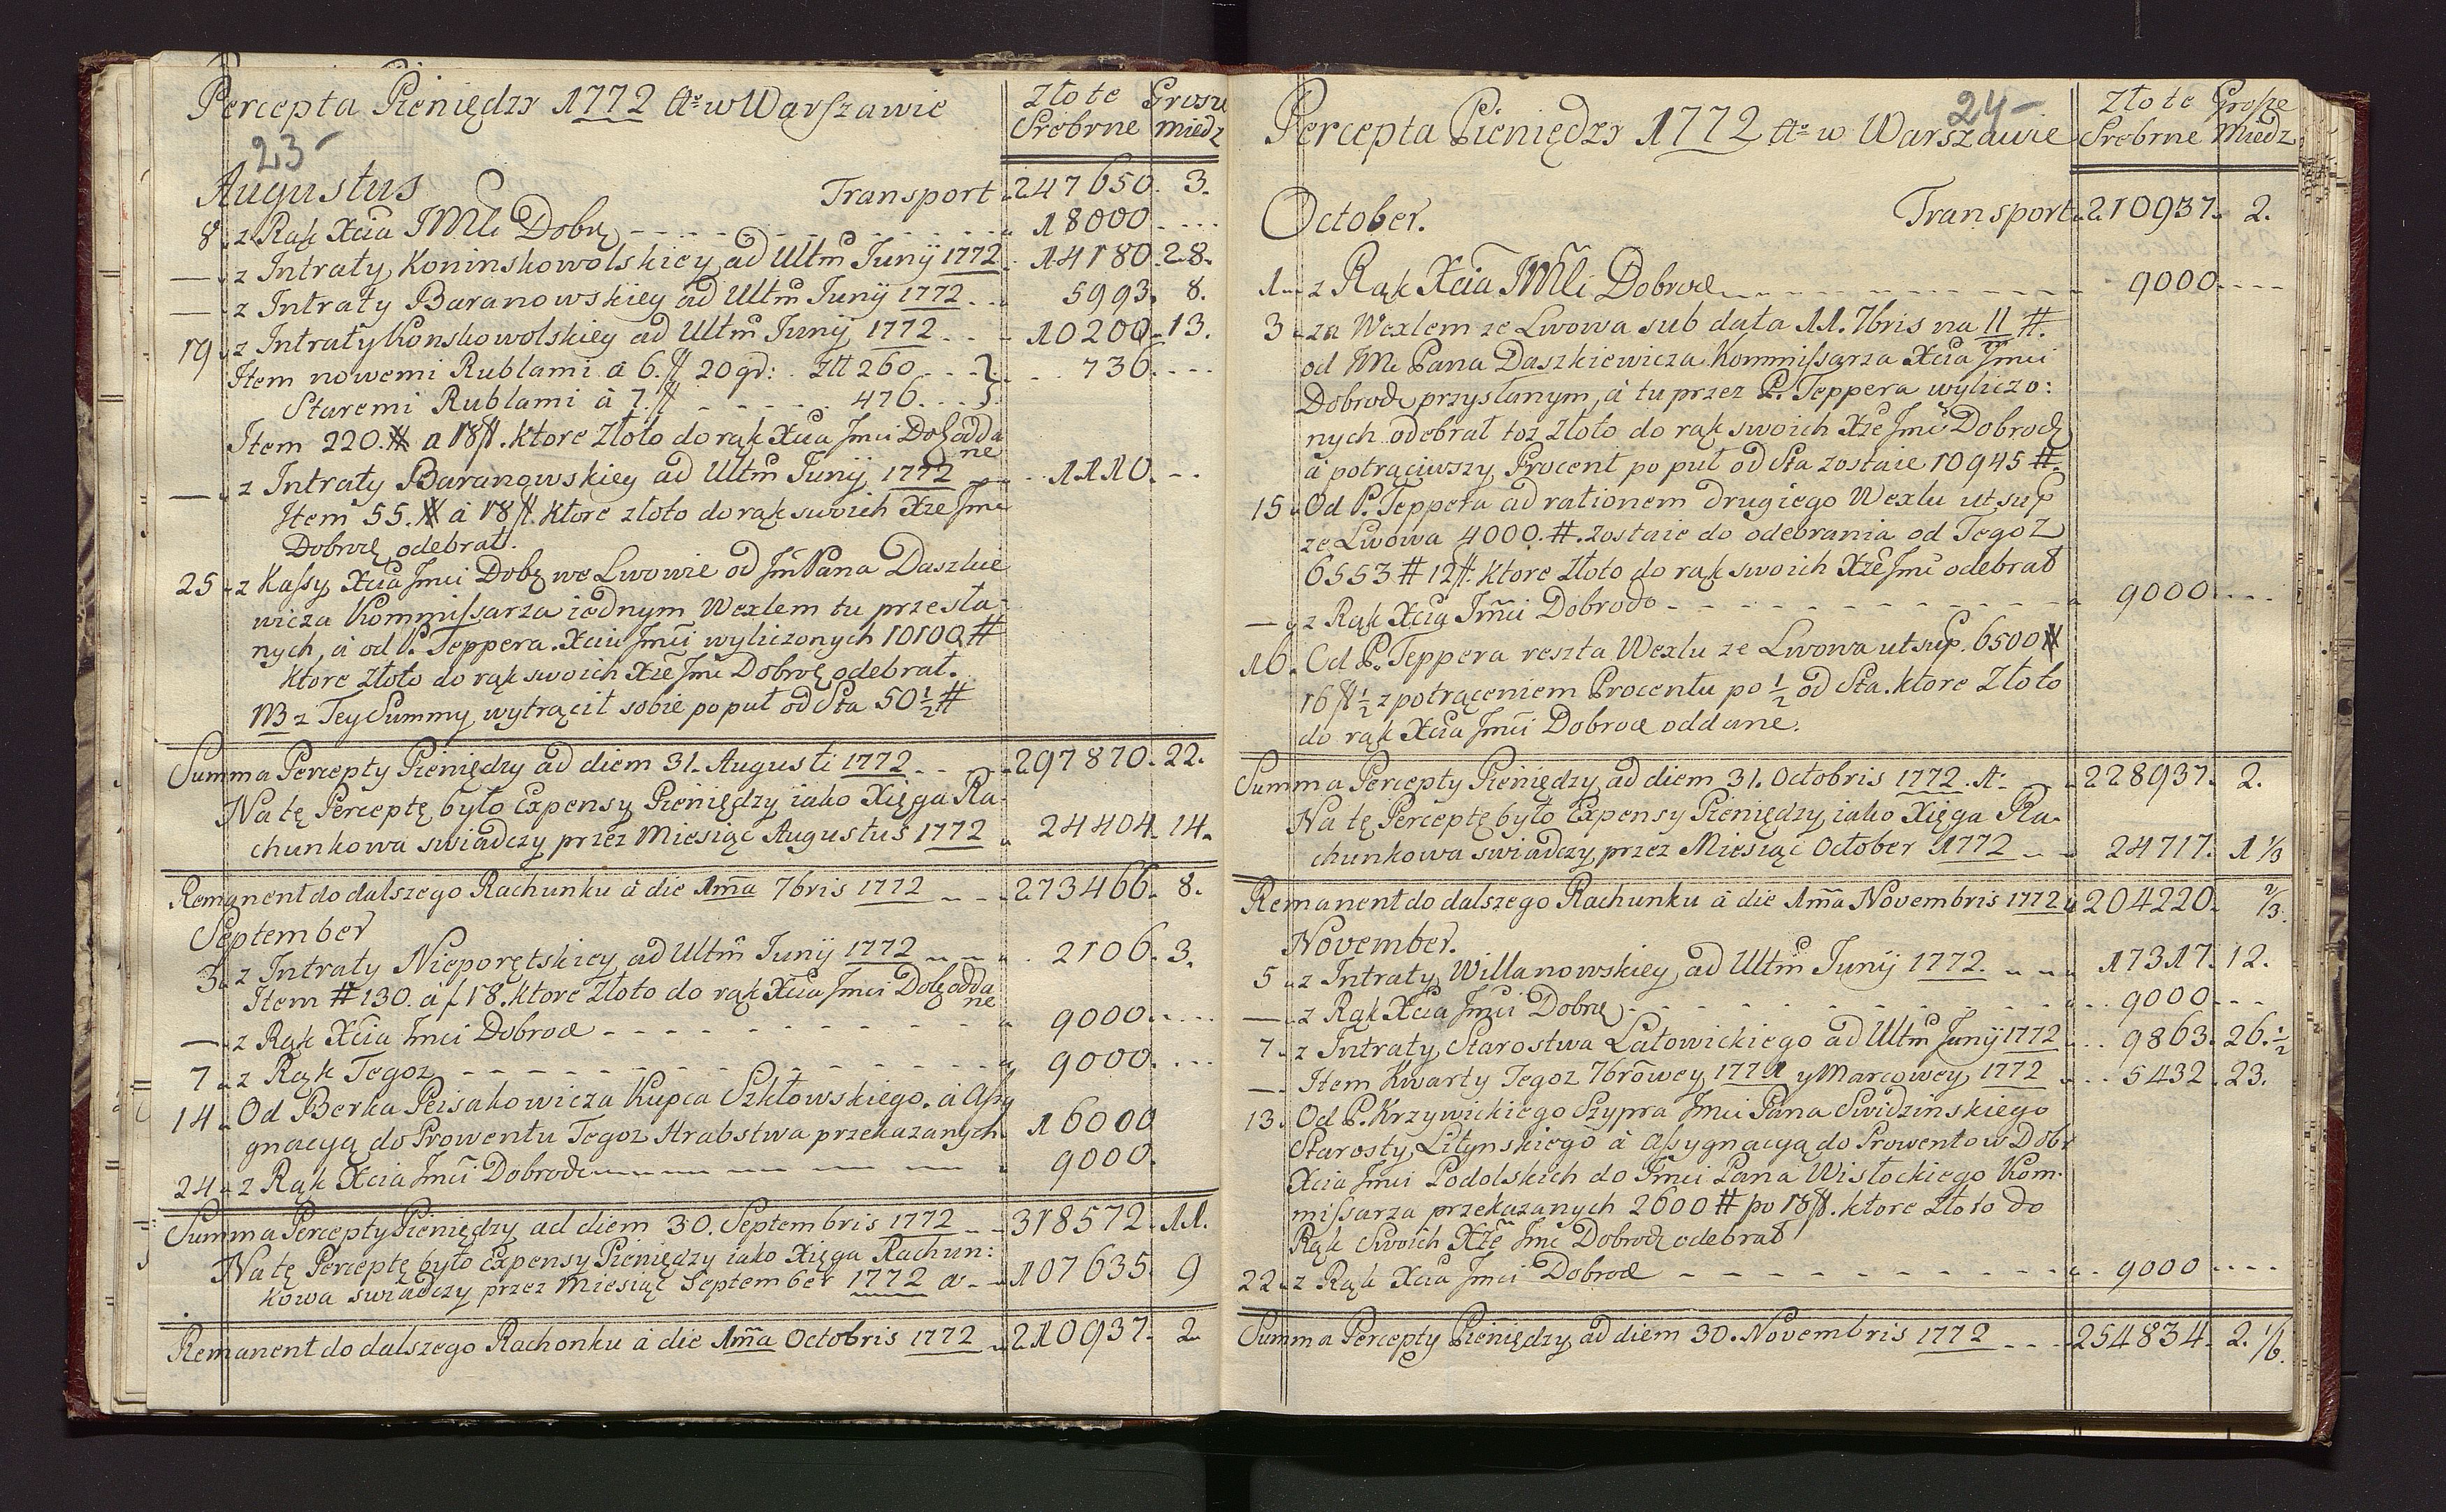 Percepta Pieniędzy 1772 Ao w Warszawie
Złote Srebrne
Grosze miedz
23
Augustus Transport 247650. 3.
8 z Rąk Xcia JMci Dobr 18000
— z Intraty Koninskowolskiey ad Ultm Junij 1772 14180. 28.
— z Intraty Baranowskiey ad Ultm Junij 1772 5993. 8.
19 z Intraty Konskowolskiey ad Ultm Junij 1772 10200. 13.
Item nowemi Rublami à 6.fl 20 gr: Zll 260 736
Staremi Rublami à 7.fl 476
Item 220.# a 18fl. ktore Złoto do rąk Xcia Jmci Dob oddane
— z Intraty Baranowskiey ad Ultm Junij 1772 1110.
Item 55.# à 18fl. ktore złoto do rąk swoich Xże Jmc
Dobrodz odebrał.
25 z Kassy Xcia Jmci Dobr we Lwowie od JmPana Daszkie
wicza Kommissarza iednym Wexlem tu przesła-
nych, à od P. Teppera Xciu Jmci wyliczonych 10100 #
ktore Złoto do rąk swoich Xże Jmc Dobrodz odebrał.
NB z Tey Summy wytrącił sobie po puł od Sta 50½ #
Summa Percepty Pieniędzy ad diem 31. Augusti 1772 297870. 22.
Na tę Perceptę było Expensy Pieniędzy iako Xięga Ra-
chunkowa swiadczy przez Miesiąc Augustus 1772 24404. 14.
Remanent do dalszego Rachunku à die 1ma 7bris 1772 273466. 8.
September
3 z Intraty Nieporętskiey ad Ultm Junij 1772 2106. 3.
Item # 130. à f 18. ktore Złoto do rąk Xcia Jmci Dob oddane
— z Rąk Xcia Jmci Dobrod 9000.
7 z Rąk Tegoz 9000.
14 Od Berka Peisakowicza Kupca Szkłowskiego. à Assy
gnacyą do Prowentu Tegoz Hrabstwa przekazanych 16000
24 z Rąk Xcia Jmci Dobrod 9000.
Summa Percepty Pieniędzy ad diem 30. Septembris 1772 318572. 11.
Na tę Perceptę było Expensy Pieniędzy iako Xięga Rachun:
kowa swiadczy przez Miesiąc September 1772 107635. 9
Remanent do dalszego Rachonku à die 1ma Octobris 1772 210937. 2.
24
Percepta Pieniędzy 1772 Ao w Warszawie
Złote Srebrne
Grosze Miedz
October. Transport 210937. 2.
1 z Rąk Xcia JMci Dobrod 9000
3 za Wexlem ze Lwowa sub data 11. 7bris na 11/m #.
od JM Pana Daszkiewicza Kommissarza Xcia Jmci
Dobrodz przysłanym, à tu przez P. Teppera wyliczo:
nych odebrał toz złoto do rąk swoich Xże Jmc Dobrodz
à potrąciwszy Procent po puł od Sta zostaie 10945 #.
15 Od P. Teppera ad rationem drugiego Wexlu ut sup
ze Lwowa 4000.#. zostaie do odebrania od Tegoz
6553 # 12fl: ktore Złoto do rąk swoich Xże Jmc odebrał
— z Rąk Xcia Jmci Dobrodo 9000
16. Od P. Teppera reszta Wexlu ze Lwowa ut sup. 6500 #
16fl ½ z potrąceniem Procentu po ½ od Sta. ktore Złoto
do rąk Xcia Jmci Dobrod oddane.
Summa Percepty Pieniędzy ad diem 31. Octobris 1772. A: 228937. 2.
Na tę Perceptę było Expensy Pieniędzy iako Xięga Ra-
chunkowa swiadczy przez Miesiąc October 1772 24717. 1 1/3
Remanent do dalszego Rachunku à die 1ma Novembris 1772 204220. 2/3.
November.
5 z Intraty Willanowskiey ad Ultm Junij 1772. 17317. 12.
— z Rąk Xcia Jmci Dobr 9000
7. z Intraty Starostwa Latowickiego ad Ultm Junij 1772 9863. 26.½
— Item Kwarty Tegoz 7browey 1771 y Marcowey 1772 5432. 23.
13. Od P. Krzywickiego Szypra Jmci Pana Swidzinskiego
Starosty Litynskiego à Assygnacyą do Prowentow Dobr
Xcia Jmci Podolskich do Jmci Pana Wisłockiego Kom:
missarza przekazanych 2600 # po 18fl. ktore Złoto do
Rąk Swoich Xże Jmc Dobrodz odebrał
22 z Rąk Xcia Jmci Dobrod 9000
Summa Percepty Pieniędzy ad diem 30. Novembris 1772 254834. 2. 1/6.